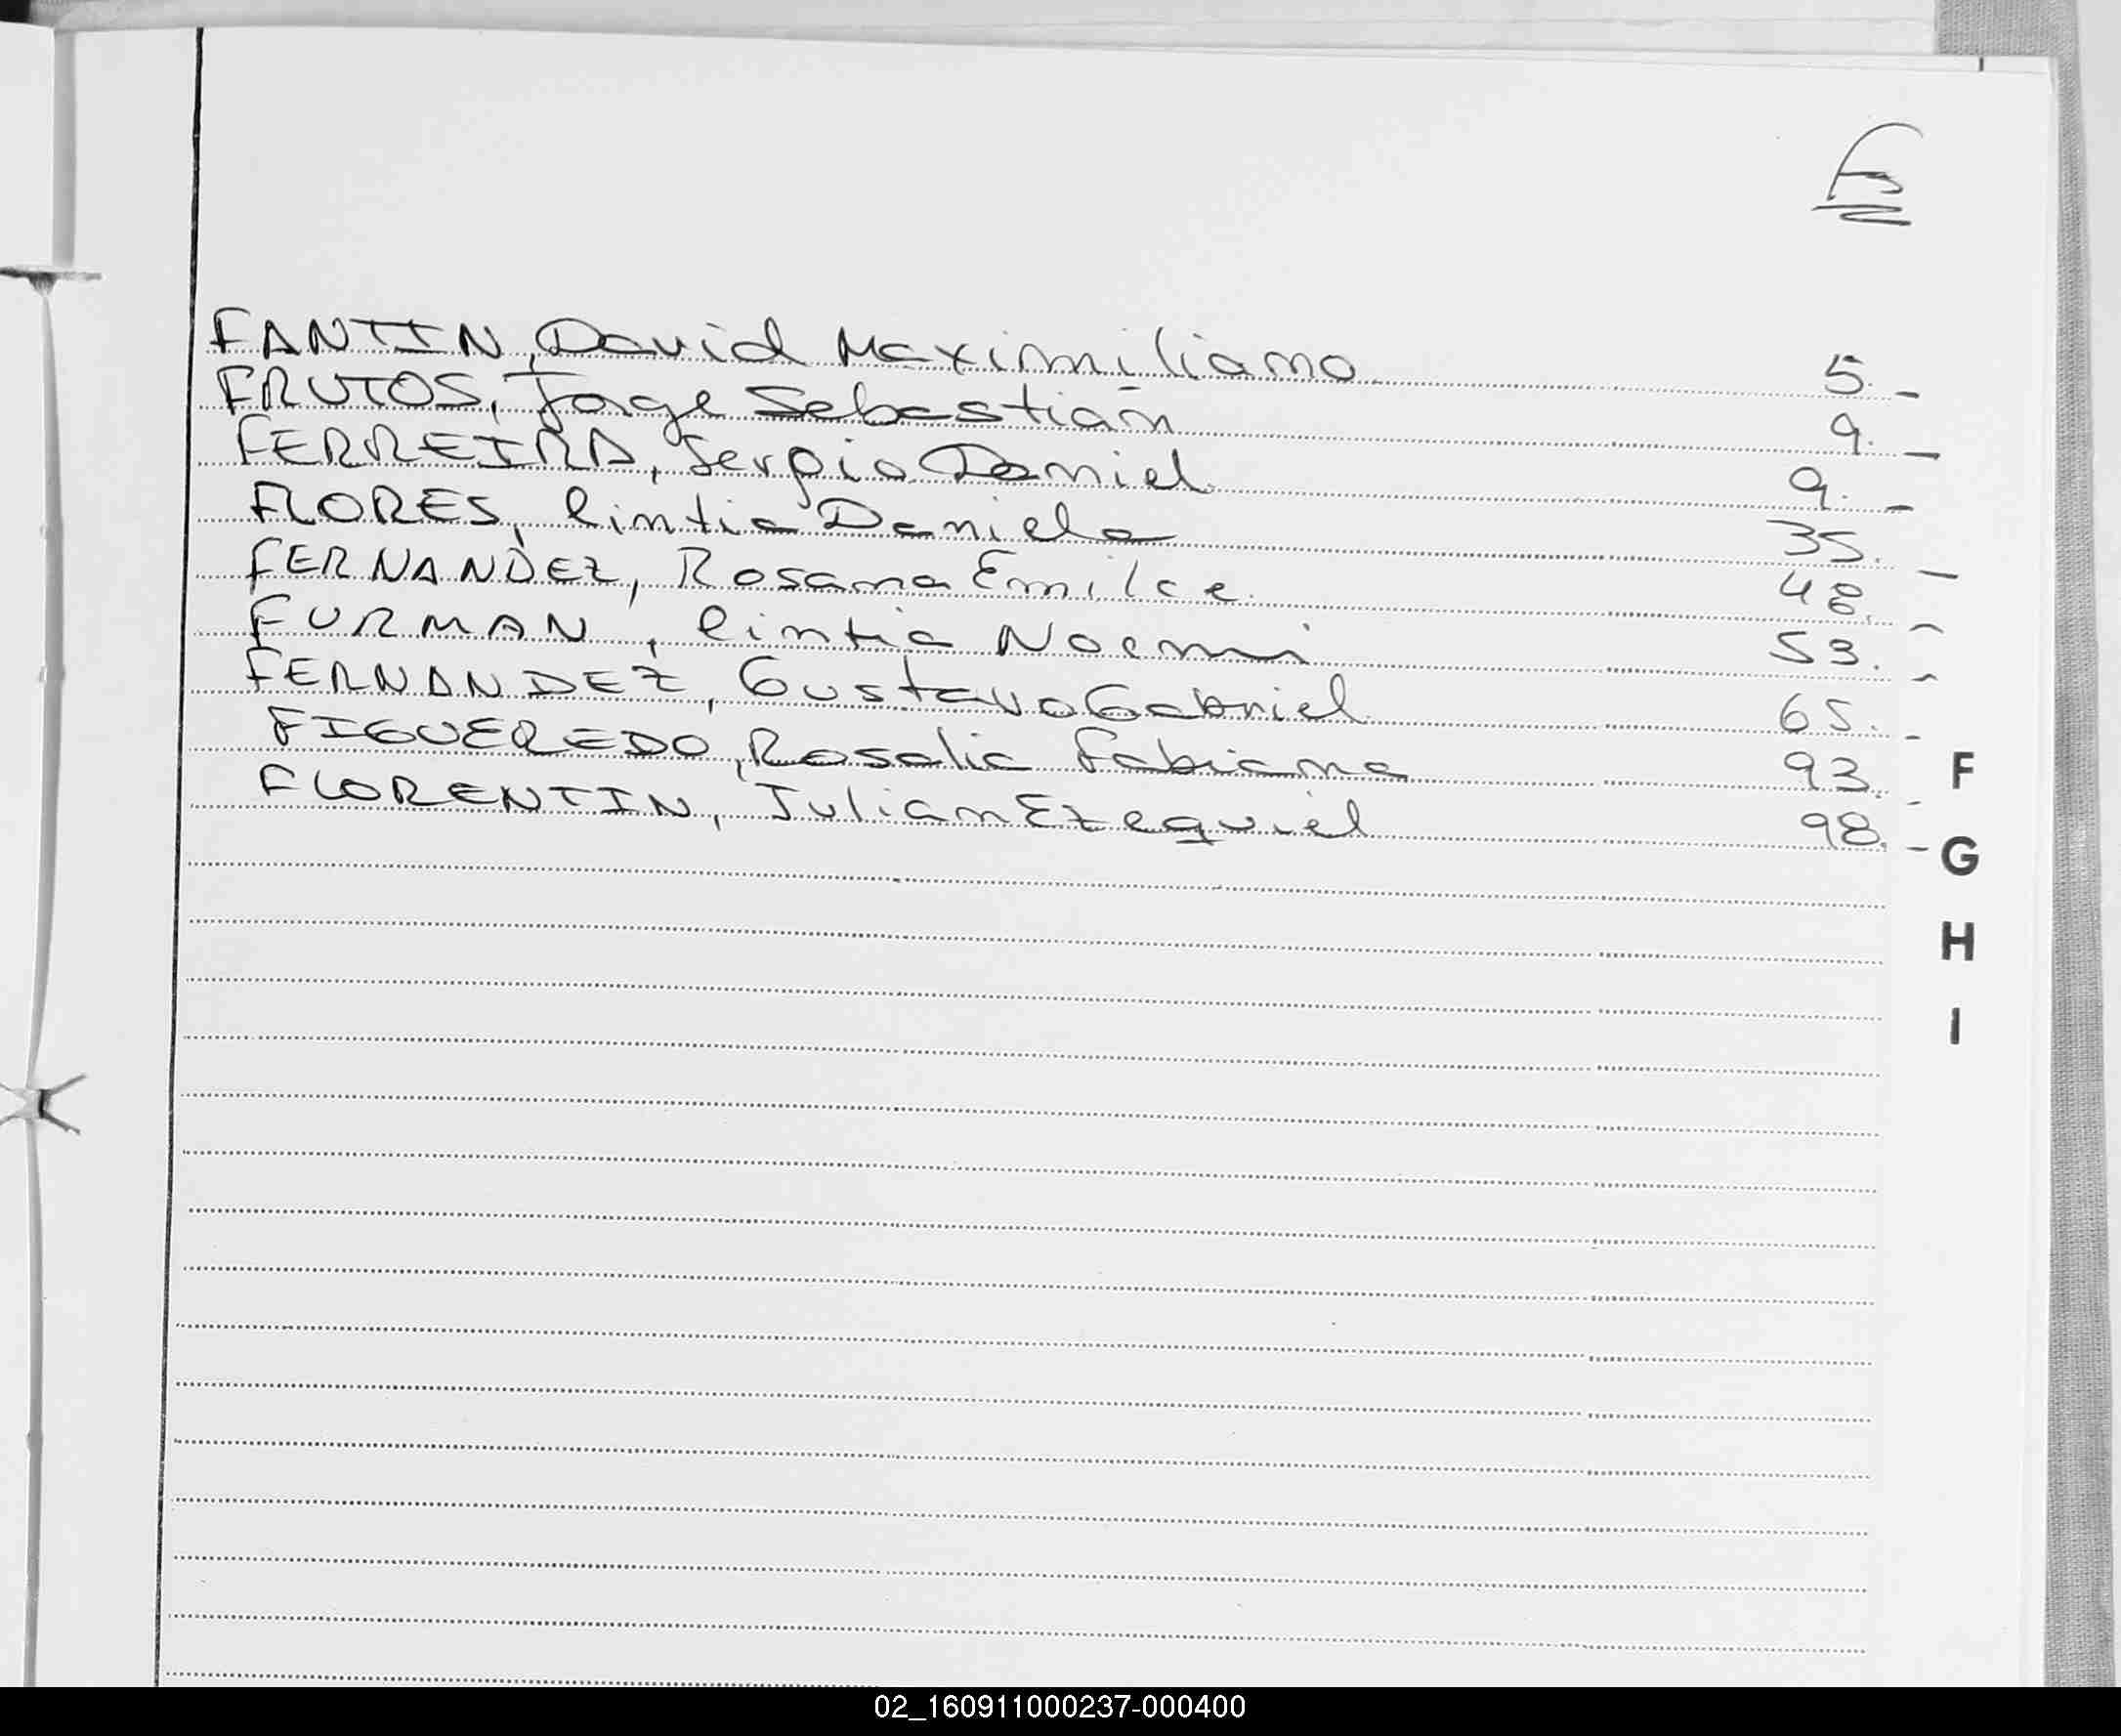 Fs
FANTIN, David Maximiliano 5. -
FRUTOS, Jorge Sebastian 9. -
FERREIRA, Sergio Daniel 9. -
FLORES, Cintia Daniela 35. -
FERNANDEZ, Rosana Emilce 48. -
FURMAN, Cintia Noemi 53. -
FERNANDEZ, Gustavo Gabriel 65. -
FIGUEREDO, Rosalia Fabiana 93. -
FLORENTIN, Julian Ezequiel 98. -
F
G
H
I
02_160911000237-000400